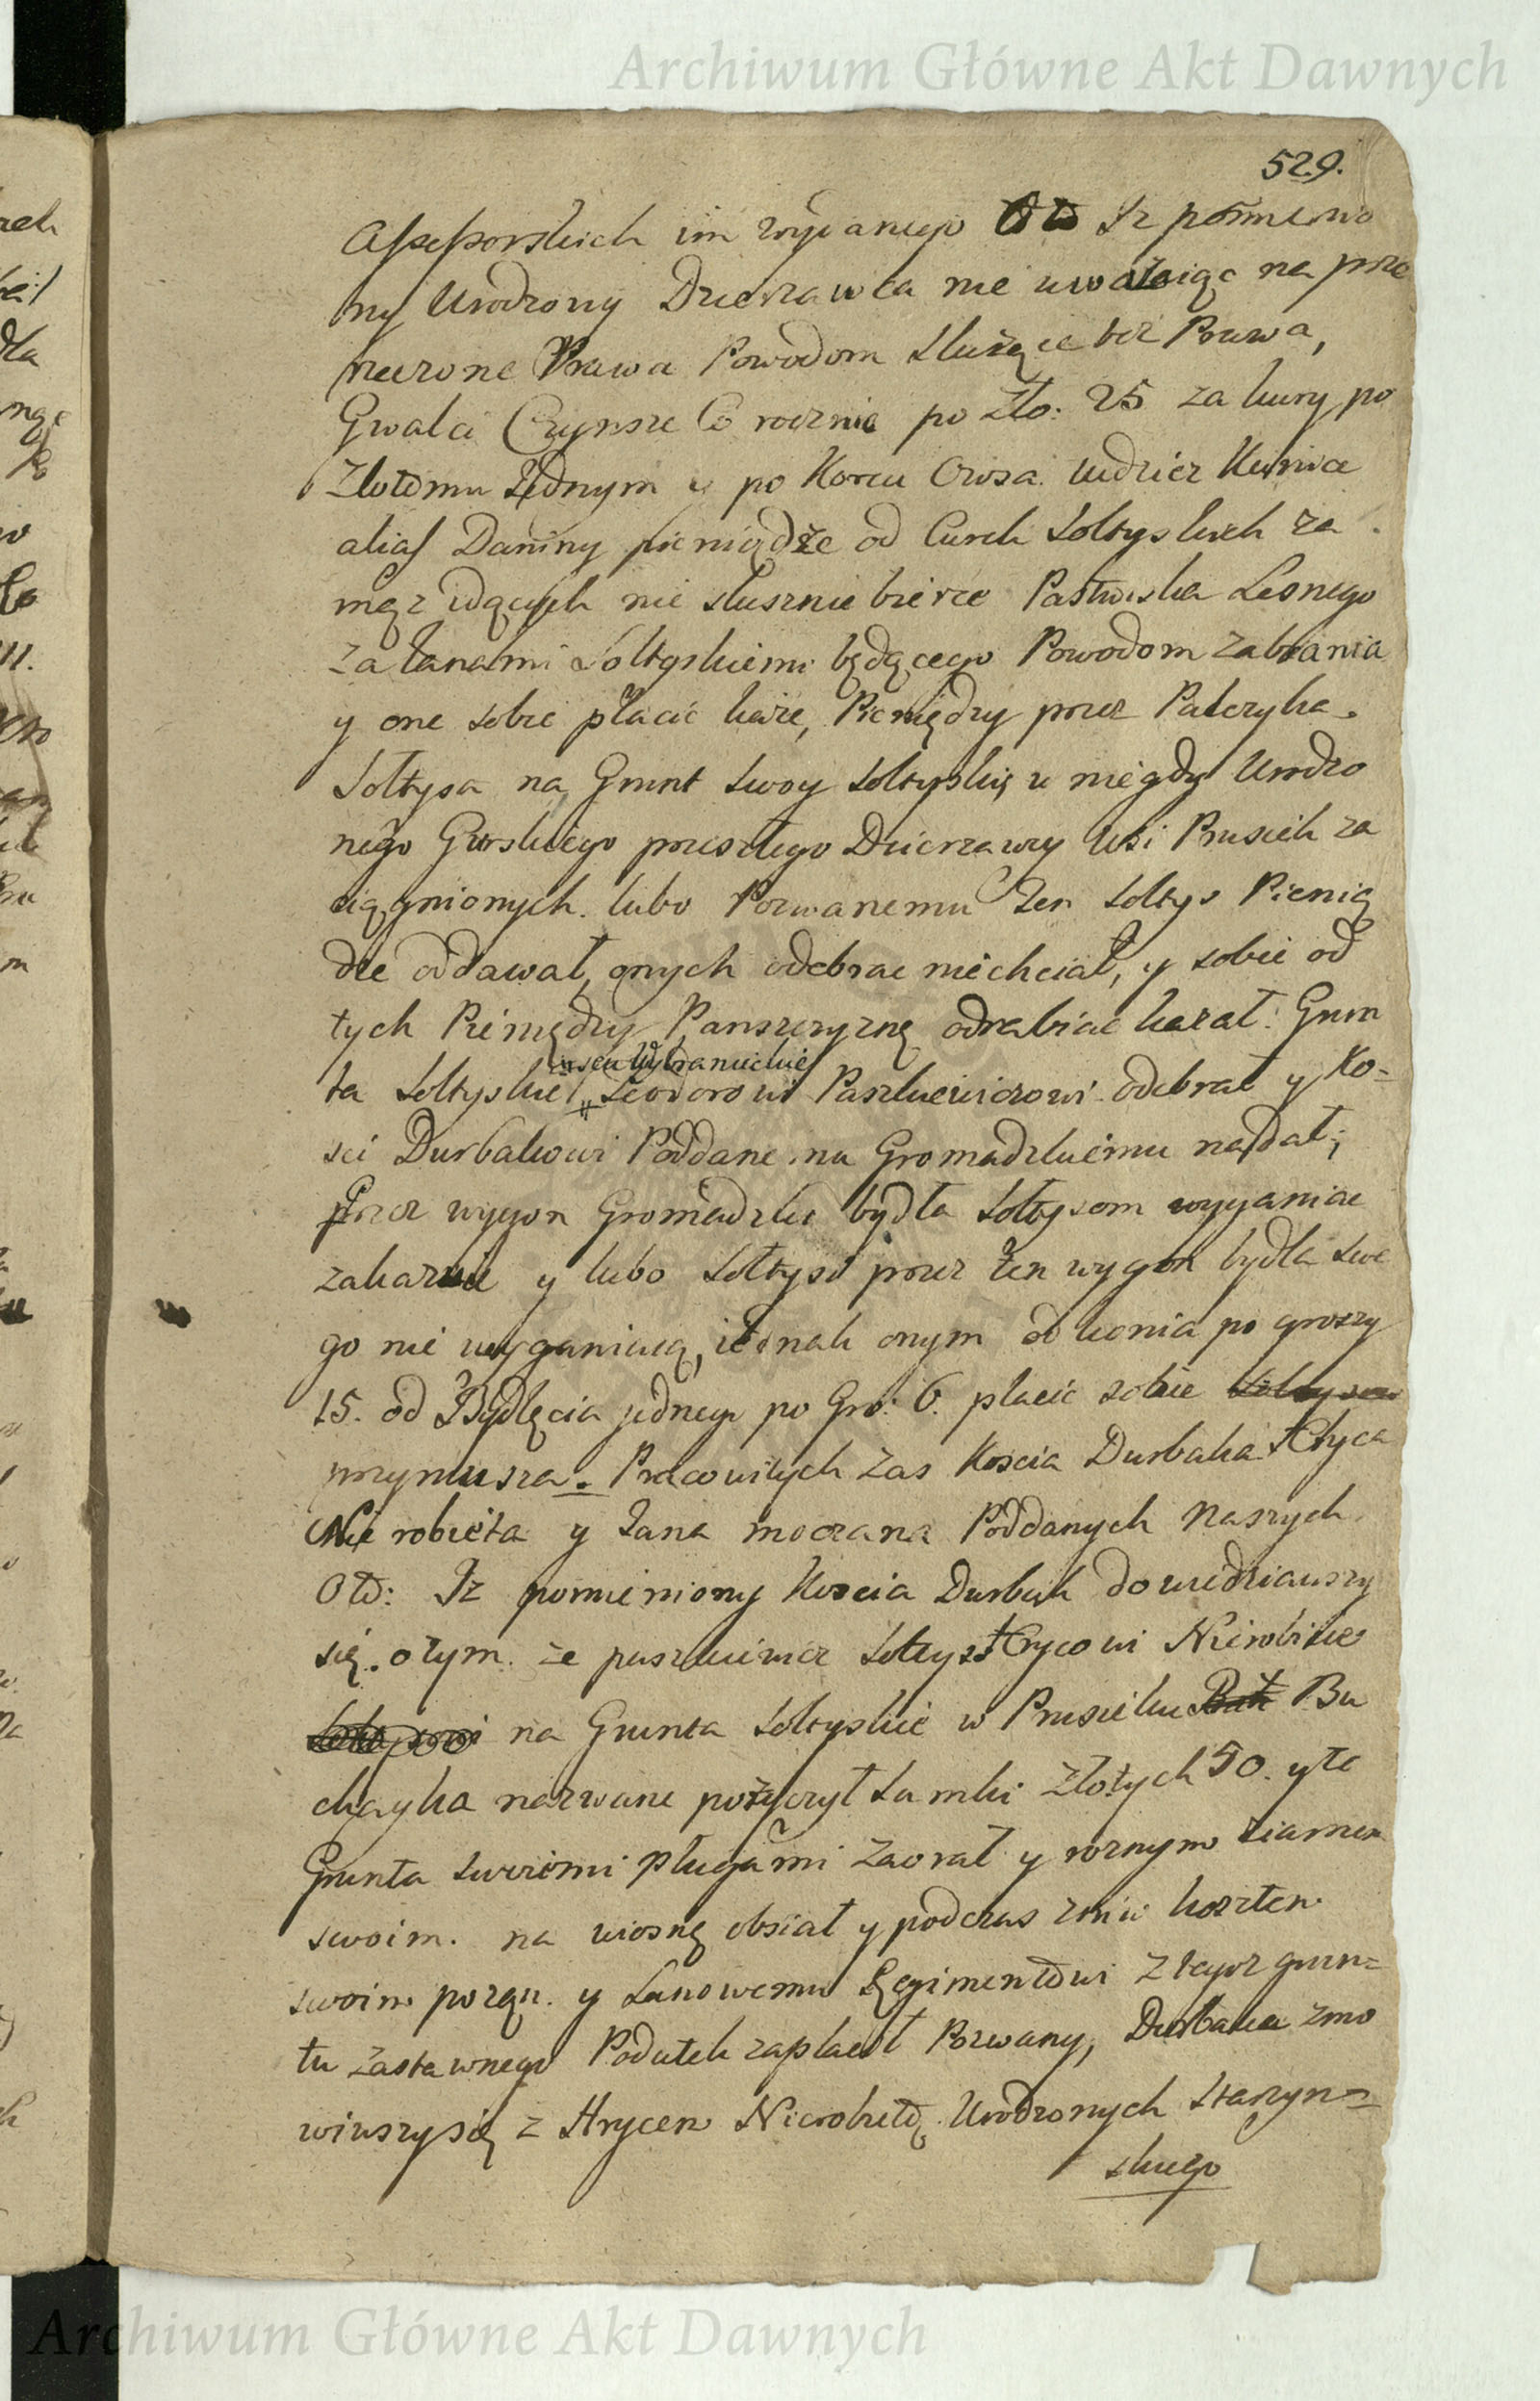 Archiwum Główne Akt Dawnych
529.
Assessorskich im wydanego Oto Iz pomienio
ny Urodzony Dzierzawca nie uwazaiąc na prze
rzeczone Prawa Powodom Służące bez Prawa,
Gwałci Czynsze Co rocznie po Zło: 25 za kury po
Złotemu Jednym y po Korcu Owsa. tudziez Kunice
alias Daniny pieniądze od Curek Sołtyskich za
mąz idących nie słusznie bierze Pastwiska Lesnego
za łanami Sołtyskiemi będącego Powodom zabrania
y one sobie płacić każe, Pieniędzy przez Palczyka
Sołtysa na Grunt swoy sołtyski u niegdy Urodzo
nego Gurskiego przeszłego Dzierzawcy Wsi Prusiek za
ciągnionych. lubo Pozwanemu Ten Sołtys Pienią
dze oddawał, onych odebrac niechciał, y sobie od
tych Pieniędzy Panszczyznę odrabiac kazał: Grun
ta Sołtyskie seu Wybranieckie Teodorowi Paszkiewiczowi odebrał y Ko=
sci Durbakowi Poddanemu Gromadzkiemu nadał;
Przez wygon Gromadzki bydła Sołtysom wyganiac
zakazuie y lubo Sołtysi przez Ten wygon bydła swe
go nie wyganiaią, iednak onym od konia po groszy
15. od Bydlęcia jednego po Gro: 6. płacic sobie Sołtysom
przymusza. Pracowitych zas Koscia Durbaka Hryca
Nie robieta y Jana moczana Poddanych Naszych
Oto: Iz pomieniony Koscia Durbak dowiedziawszy
się. o tym. ze paszkiewicz Sołtys Hrycowi Nierobicie
na Grunta Sołtyskie w Prusieku Bu
chayka nazwane pożyczył Sumki Złotych 50. y te
Grunta swoiemi pługami zaorał y roznym ziarnem
swoim. na wiosnę obsiał y podczas zniw kosztem
swoim pozął. y Łanowemu Regimentowi z tegoz grun=
tu zastawnego Podatek zapłacił Pozwany, Durbaka zmo
wiwszy się z Hrycem Nierobietą. Urodzonych Staszyn=
skiego
Archiwum Główne Akt Dawnych